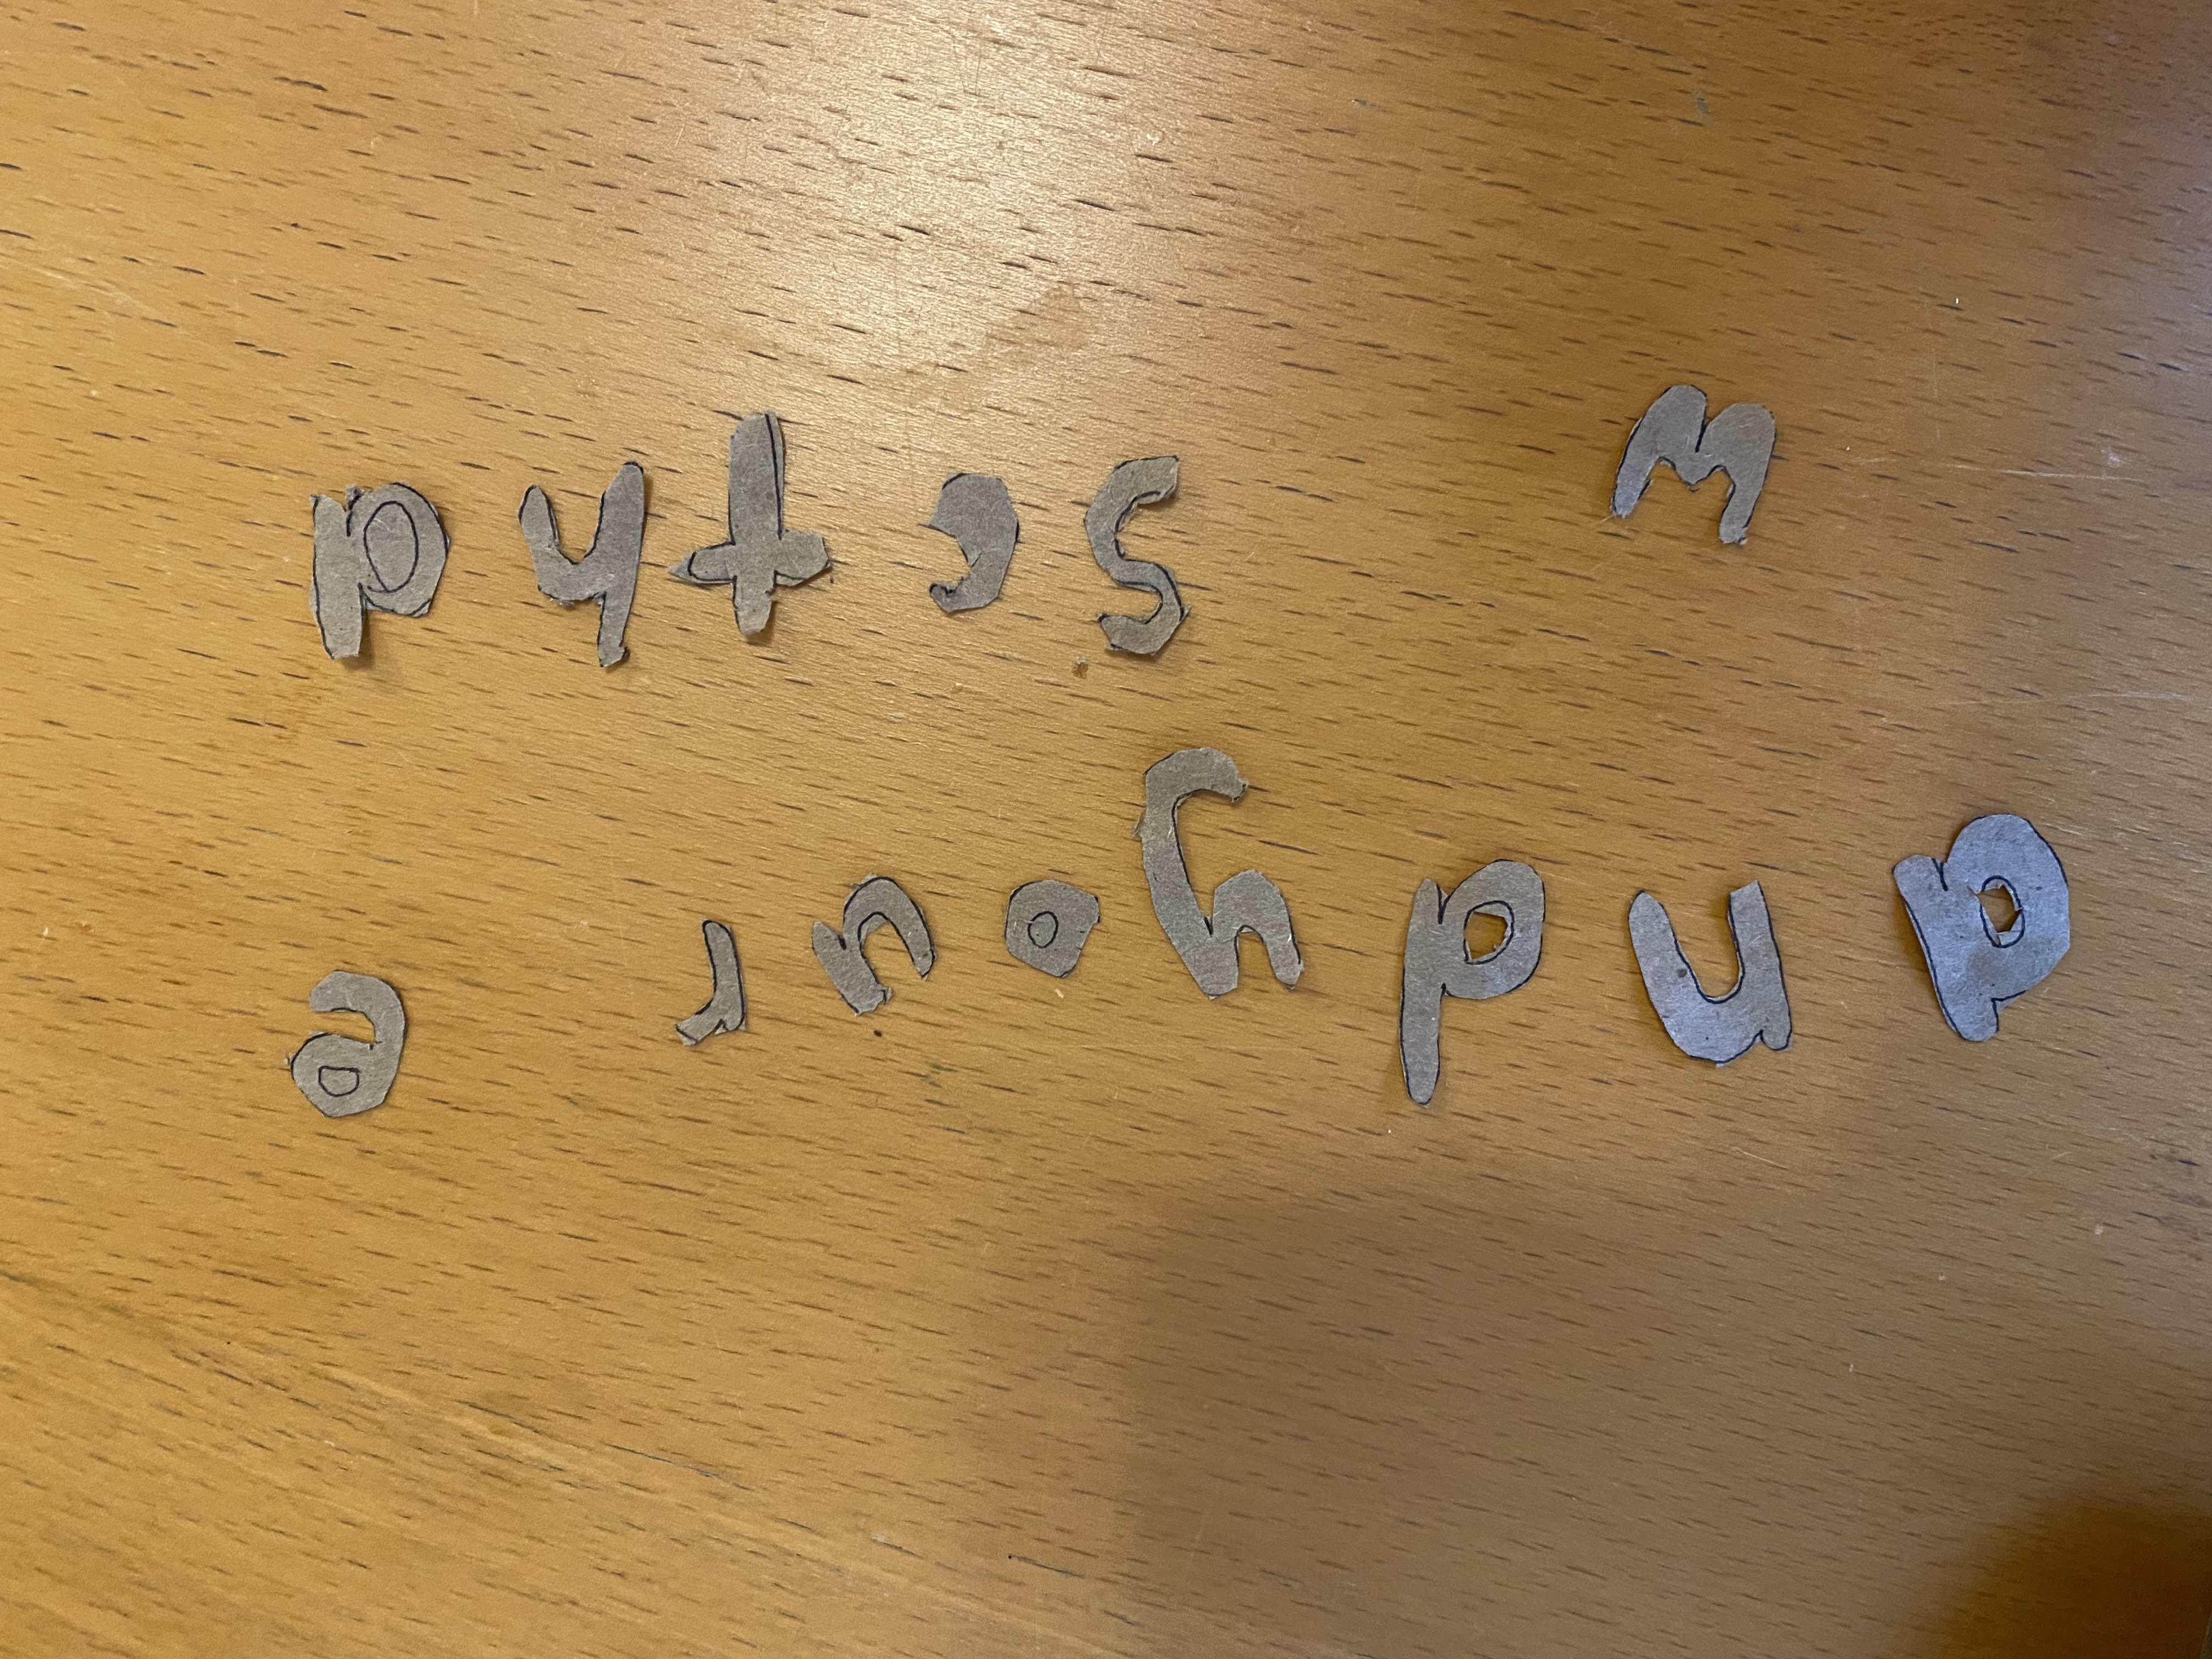 andyour e
w scthd